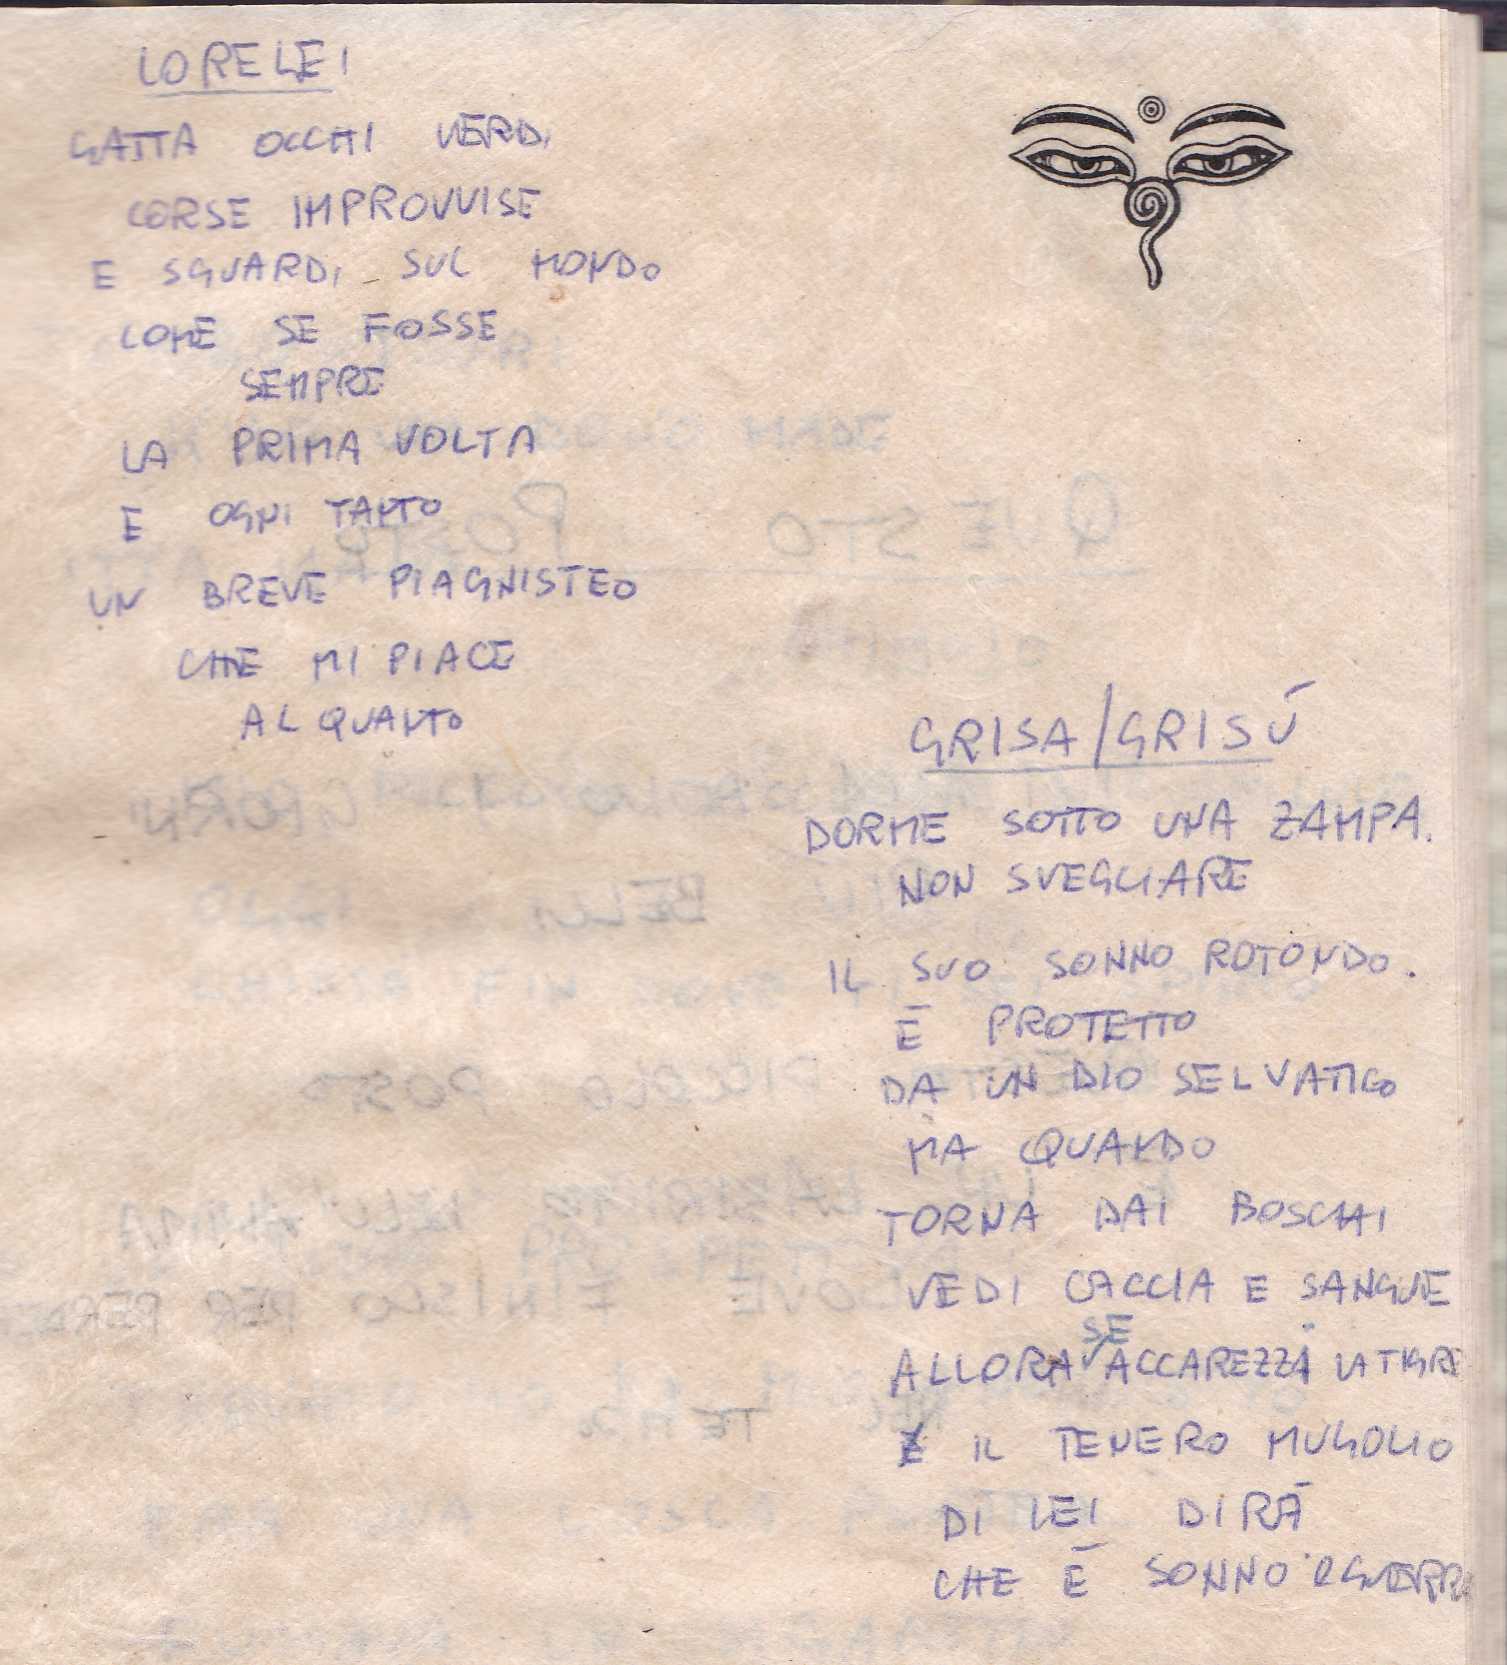 LORELEI
GATTA OCCHI VERDI
CORSE IMPROVVISE
E SGUARDI SUL MONDO
COME SE FOSSE
SEMPRE
LA PRIMA VOLTA
E OGNI TANTO
UN BREVE PIAGNISTEO
CHE MI PIACE
AL QUANTO
GRISA/GRISÙ
DORME SOTTO UNA ZAMPA.
NON SVEGLIARE
IL SUO SONNO ROTONDO.
È PROTETTO
DA UN DIO SELVATICO
MA QUANDO
TORNA DAI BOSCHI
VEDI CACCIA E SANGUE
SE
ALLORA ACCAREZZI LA TIGRE
IL TENERO MUGOLIO
DI LEI DIRÀ
CHE È SONNO O GUERRA